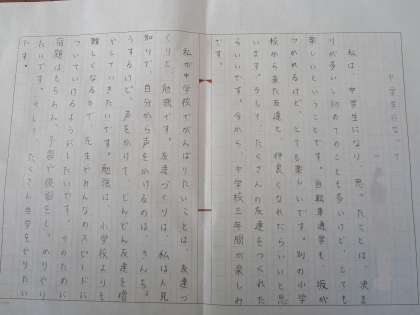 中学生になって
私は、中学生になり、思ったことは、決ま
りが多いし初めてのことも多いけど、とても
楽しいということです。自転車通学も、坂が
つかれるけど、とても楽しいです。別の小学
校から来た友達と、仲良くなれたらいいと思
います。そして、たくさんの友達をつくれた
らいいです。今から、中学校三年間が楽しみ
です。
私が中学校でがんばりたいことは、友達つ
くりと、勉強です。友達づくりは、私は人見
知りで、自分から声をかけるのは、きんちょ
うするけど、声をかけて、どんどん友達を増
やしていきたいです。勉強は、小学校よりも
難しくなるので、先生やみんなのスピードに
ついていけるようにしたいです。そのために
宿題はもちろん、予習や復習をし、のりやり
たいです。そして、たくさん自学をやりたい
です。